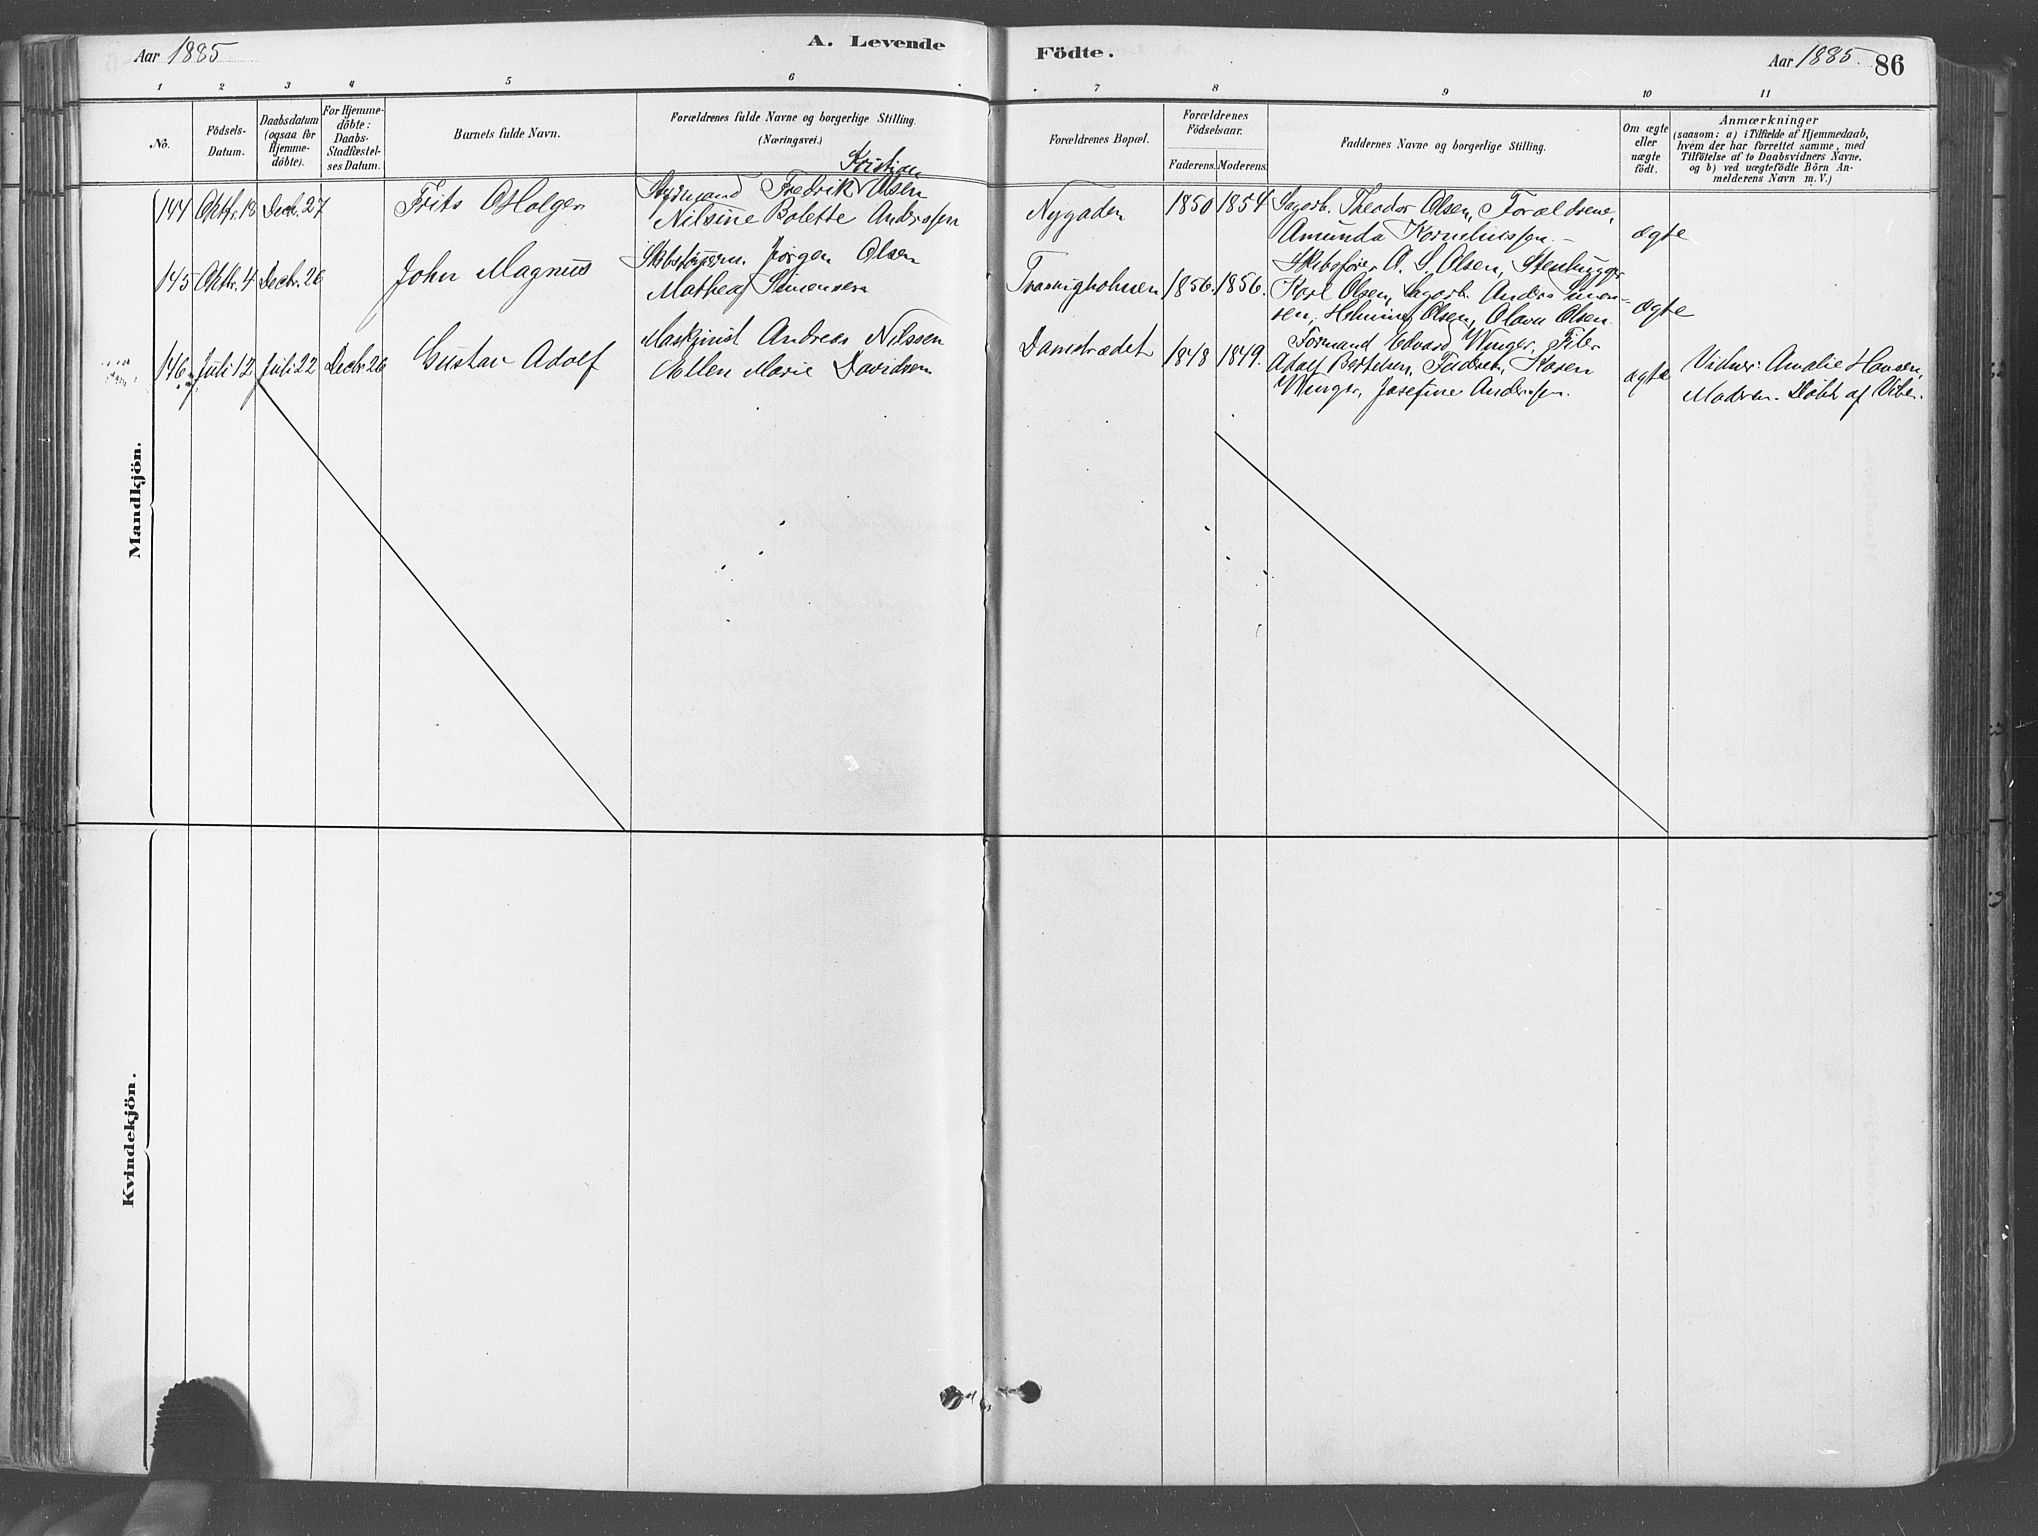 Aar 1885
A. Levende
Födte.
Aar 1885.
86
1 2 3 4 5 6 7 8 9 10 11
No.
Födsels-Datum.
Daabsdatum (ogsaa för Hjemme-döbte).
For Hjemme-döbte: Daabs-Stadfæstel-ses Datum.
Barnets fulde Navn.
Forældrenes fulde Navne og borgerlige Stilling.
(Næringsvei.)
Forældrenes Bopæl.
Forældrenes Födselsaar.
Faderens. Moderens.
Faddernes Navne og borgerlige Stilling.
Om ægte eller uægte födt.
Anmærkninger
(saasom: a) i Tilfælde af Hjemmedaab,
hvem der har forrettet samme, med
Tilföielse af to Daabsvidners Navne,
og b) ved uægtefödte Börn An-
melderens Navn m. V.)
Kristian
144 Oktbr. 18 Decbr. 27 Frits Holger Styrmand Fredrik Olsen
Nilsine Bolette Anderssen
Nygaden 1850 1854 Sagarb. Theodor Olsen, Forældrene,
Amunda Korneliussen. – ægte
145 Oktbr. 4 Decbr. 26 John Magnus Jørgen Olsen
Mathea Simensen
1856. 1856. Skibsfører A. S. Olsen, Stenhugger
Karl Olsen, Sagarb. Anders Simen-
sen, Olsen, Olava Olsen. ægte
146 Juli 12 Juli 22 Decbr 26 Gustav Adolf Maskinist Andreas Nilssen
Ellen Marie Davidsen
Damstrædet 1848 1849. Formand Edvard Winger, Filer
Adolf Bertelsen, Karen
Winger, Josefine Anderssen. ægte
Vidner: Amalie Hansen,
Modren. Døbt af Vibe.
Mandkjön.
Kvindekjön.